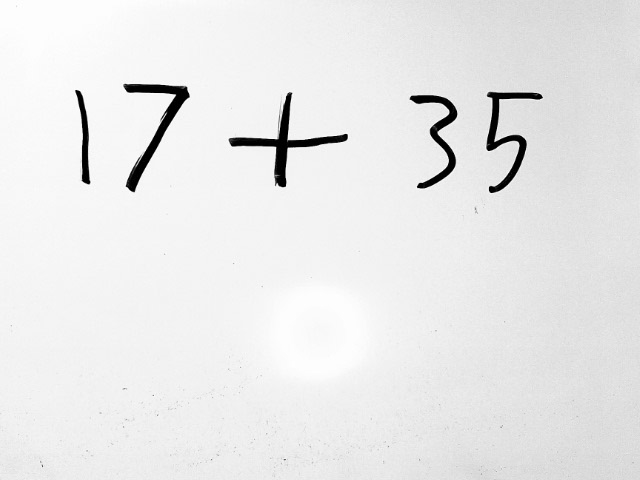 17 + 35